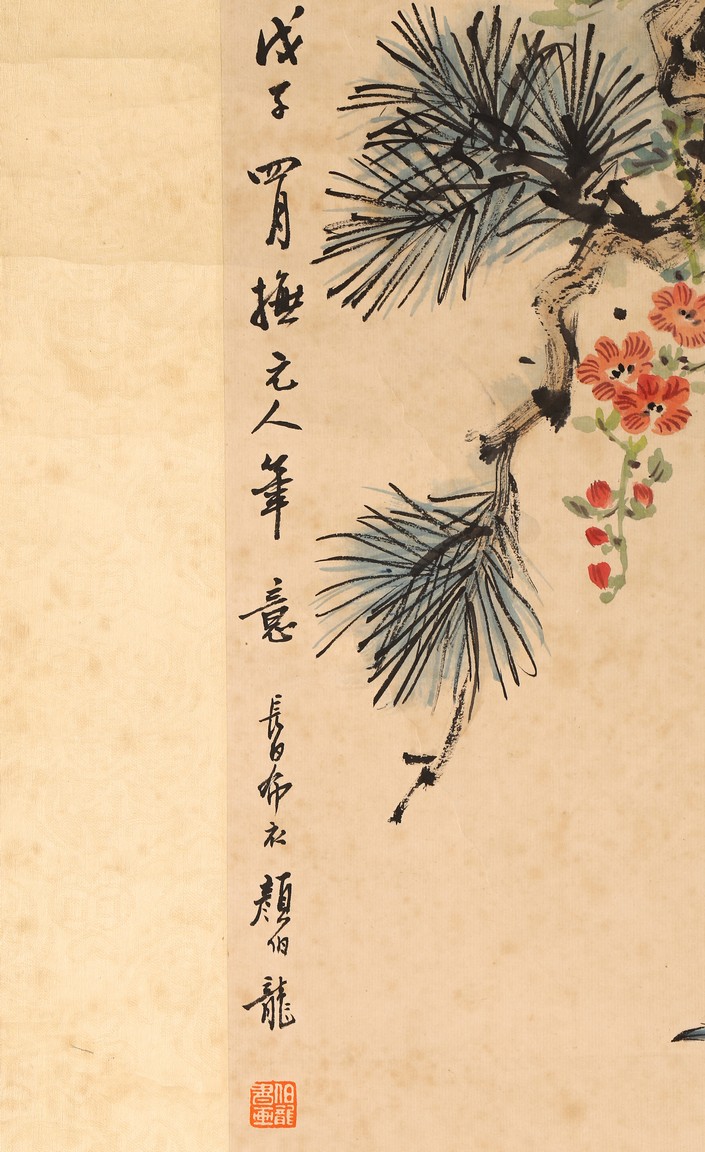 戊子四月撫元人筆意長白布衣顏伯龍
伯龍書畫